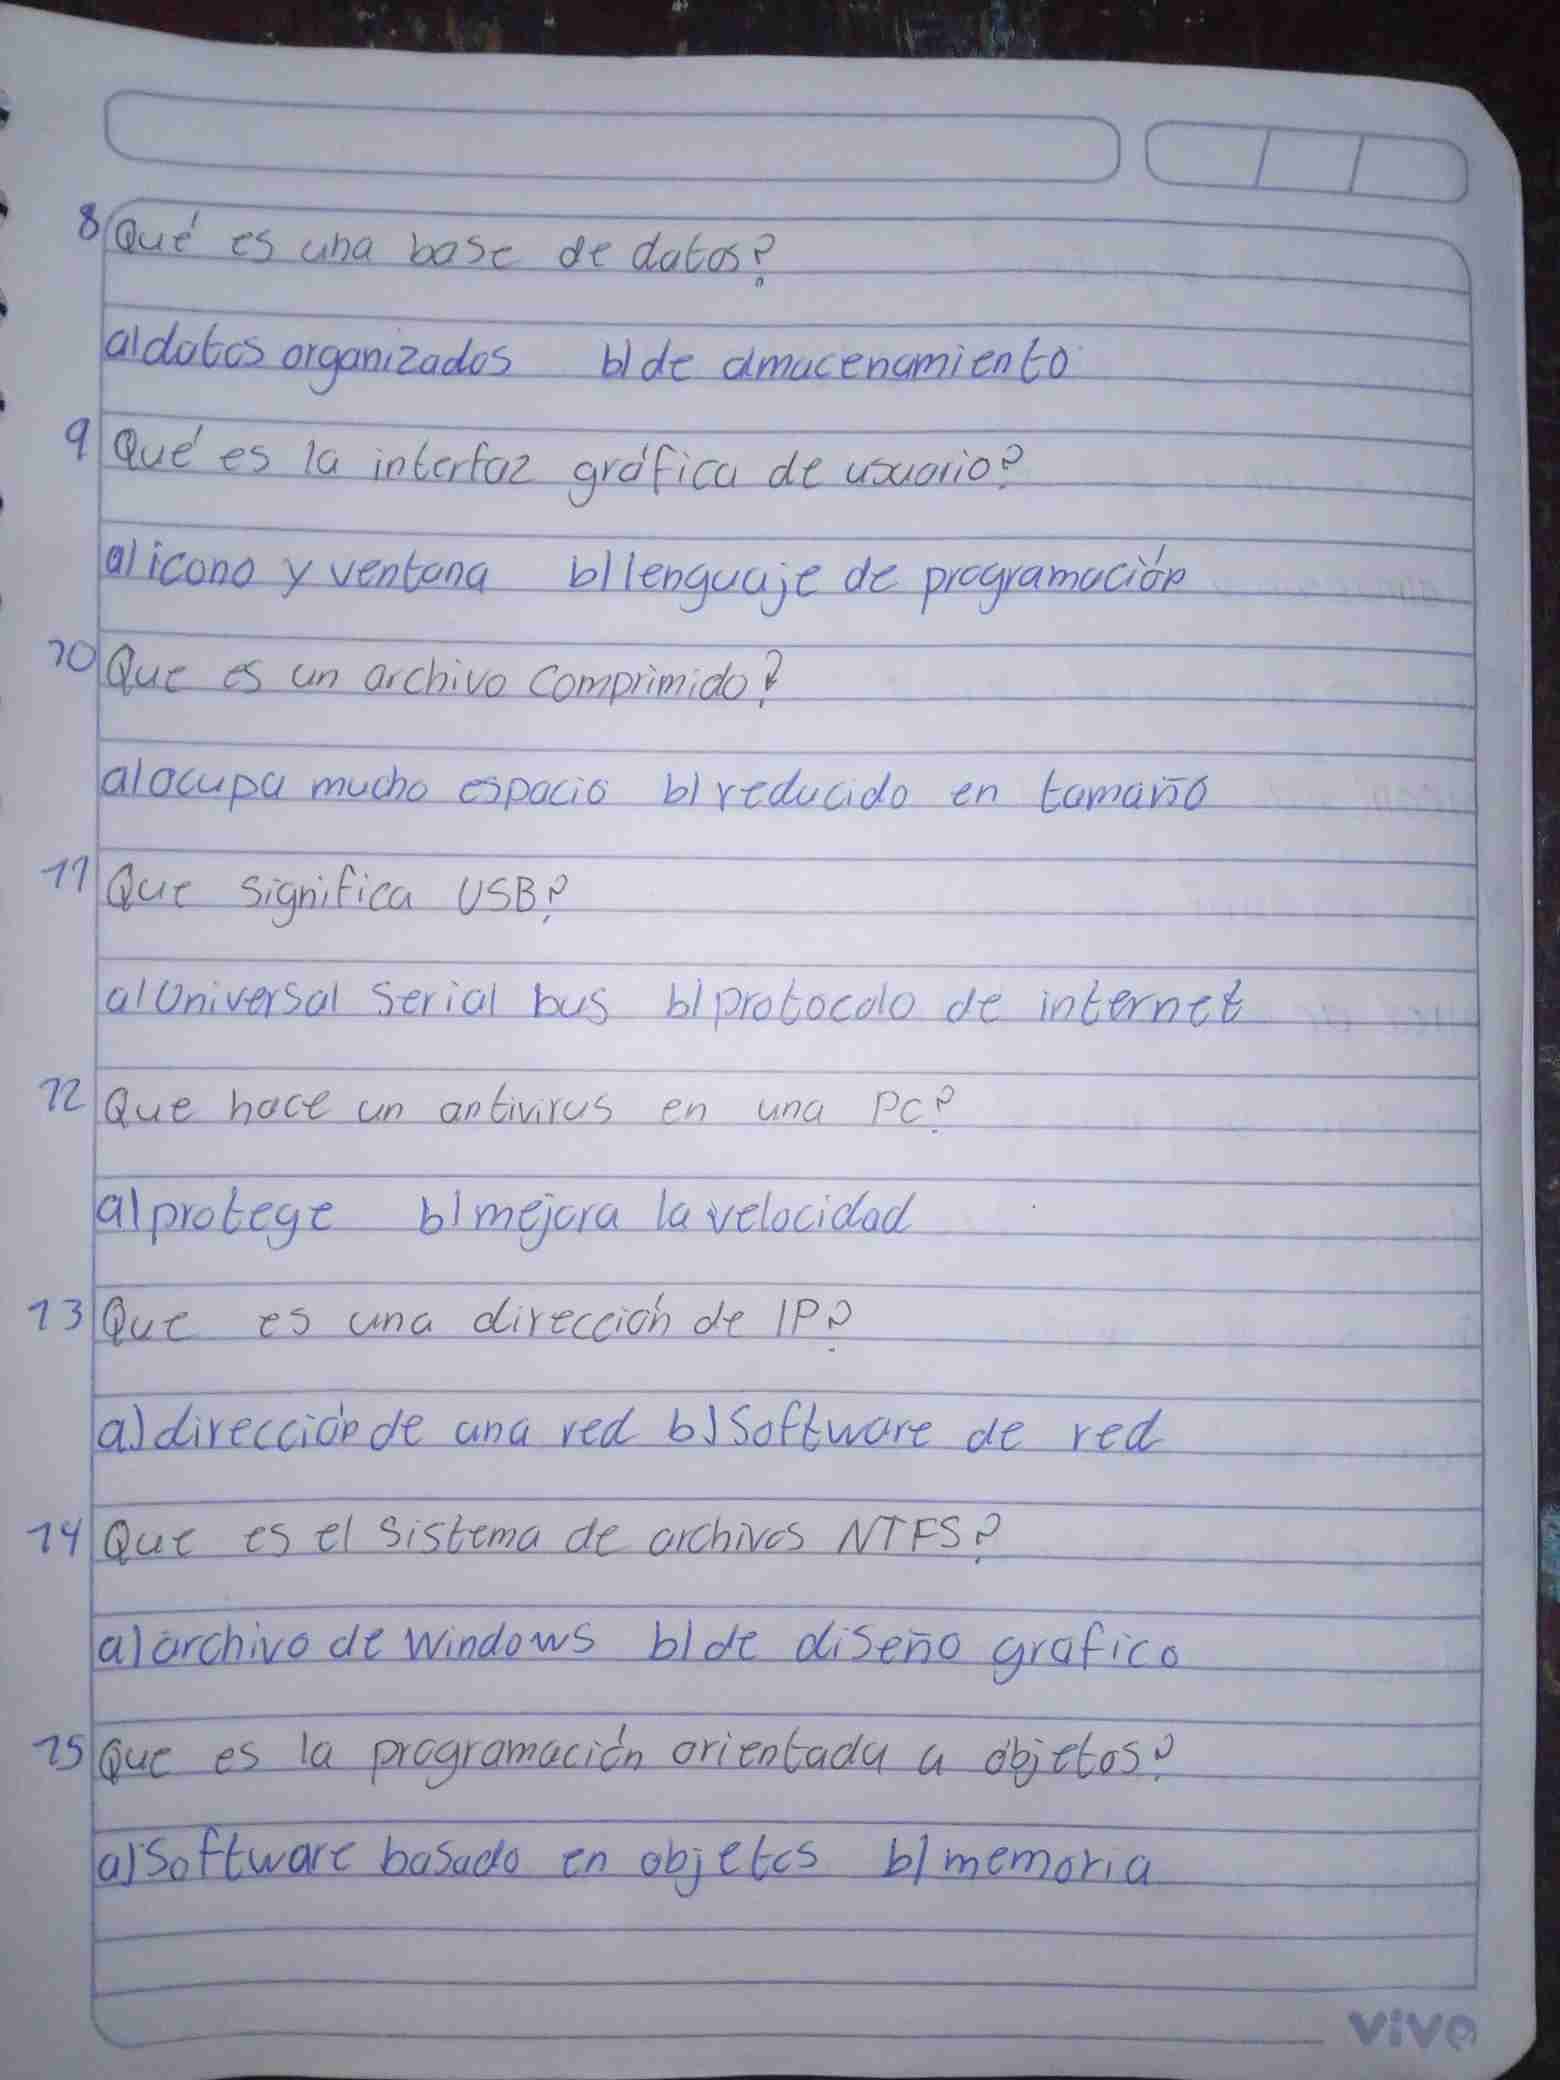 8 Qué es una base de datos?
a) datos organizados b) de almacenamiento
9 Qué es la interfaz gráfica de usuario?
a) icono y ventana b) lenguaje de programación
10 Que es un archivo comprimido?
a) ocupa mucho espacio b) reducido en tamaño
11 Que significa USB?
a) Universal Serial bus b) protocolo de internet
12 Que hace un antivirus en una PC?
a) protege b) mejora la velocidad
13 Que es una dirección de IP?
a) dirección de una red b) Software de red
14 Que es el sistema de archivos NTFS?
a) archivo de Windows b) de diseño grafico
15 Que es la programación orientada a objetos?
a) Software basado en objetos b) memoria
vivo